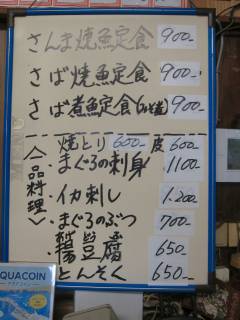 さんま焼魚定食 900-
さば焼魚定食 900-
さば煮魚定食(みそ煮) 900-
一品料理
焼とり 600- 皮 600-
まぐろの刺身 1100-
イカ刺し 1.200-
まぐろのぶつ 700-
揚豆腐 650-
とんそく 650-
QUACOIN